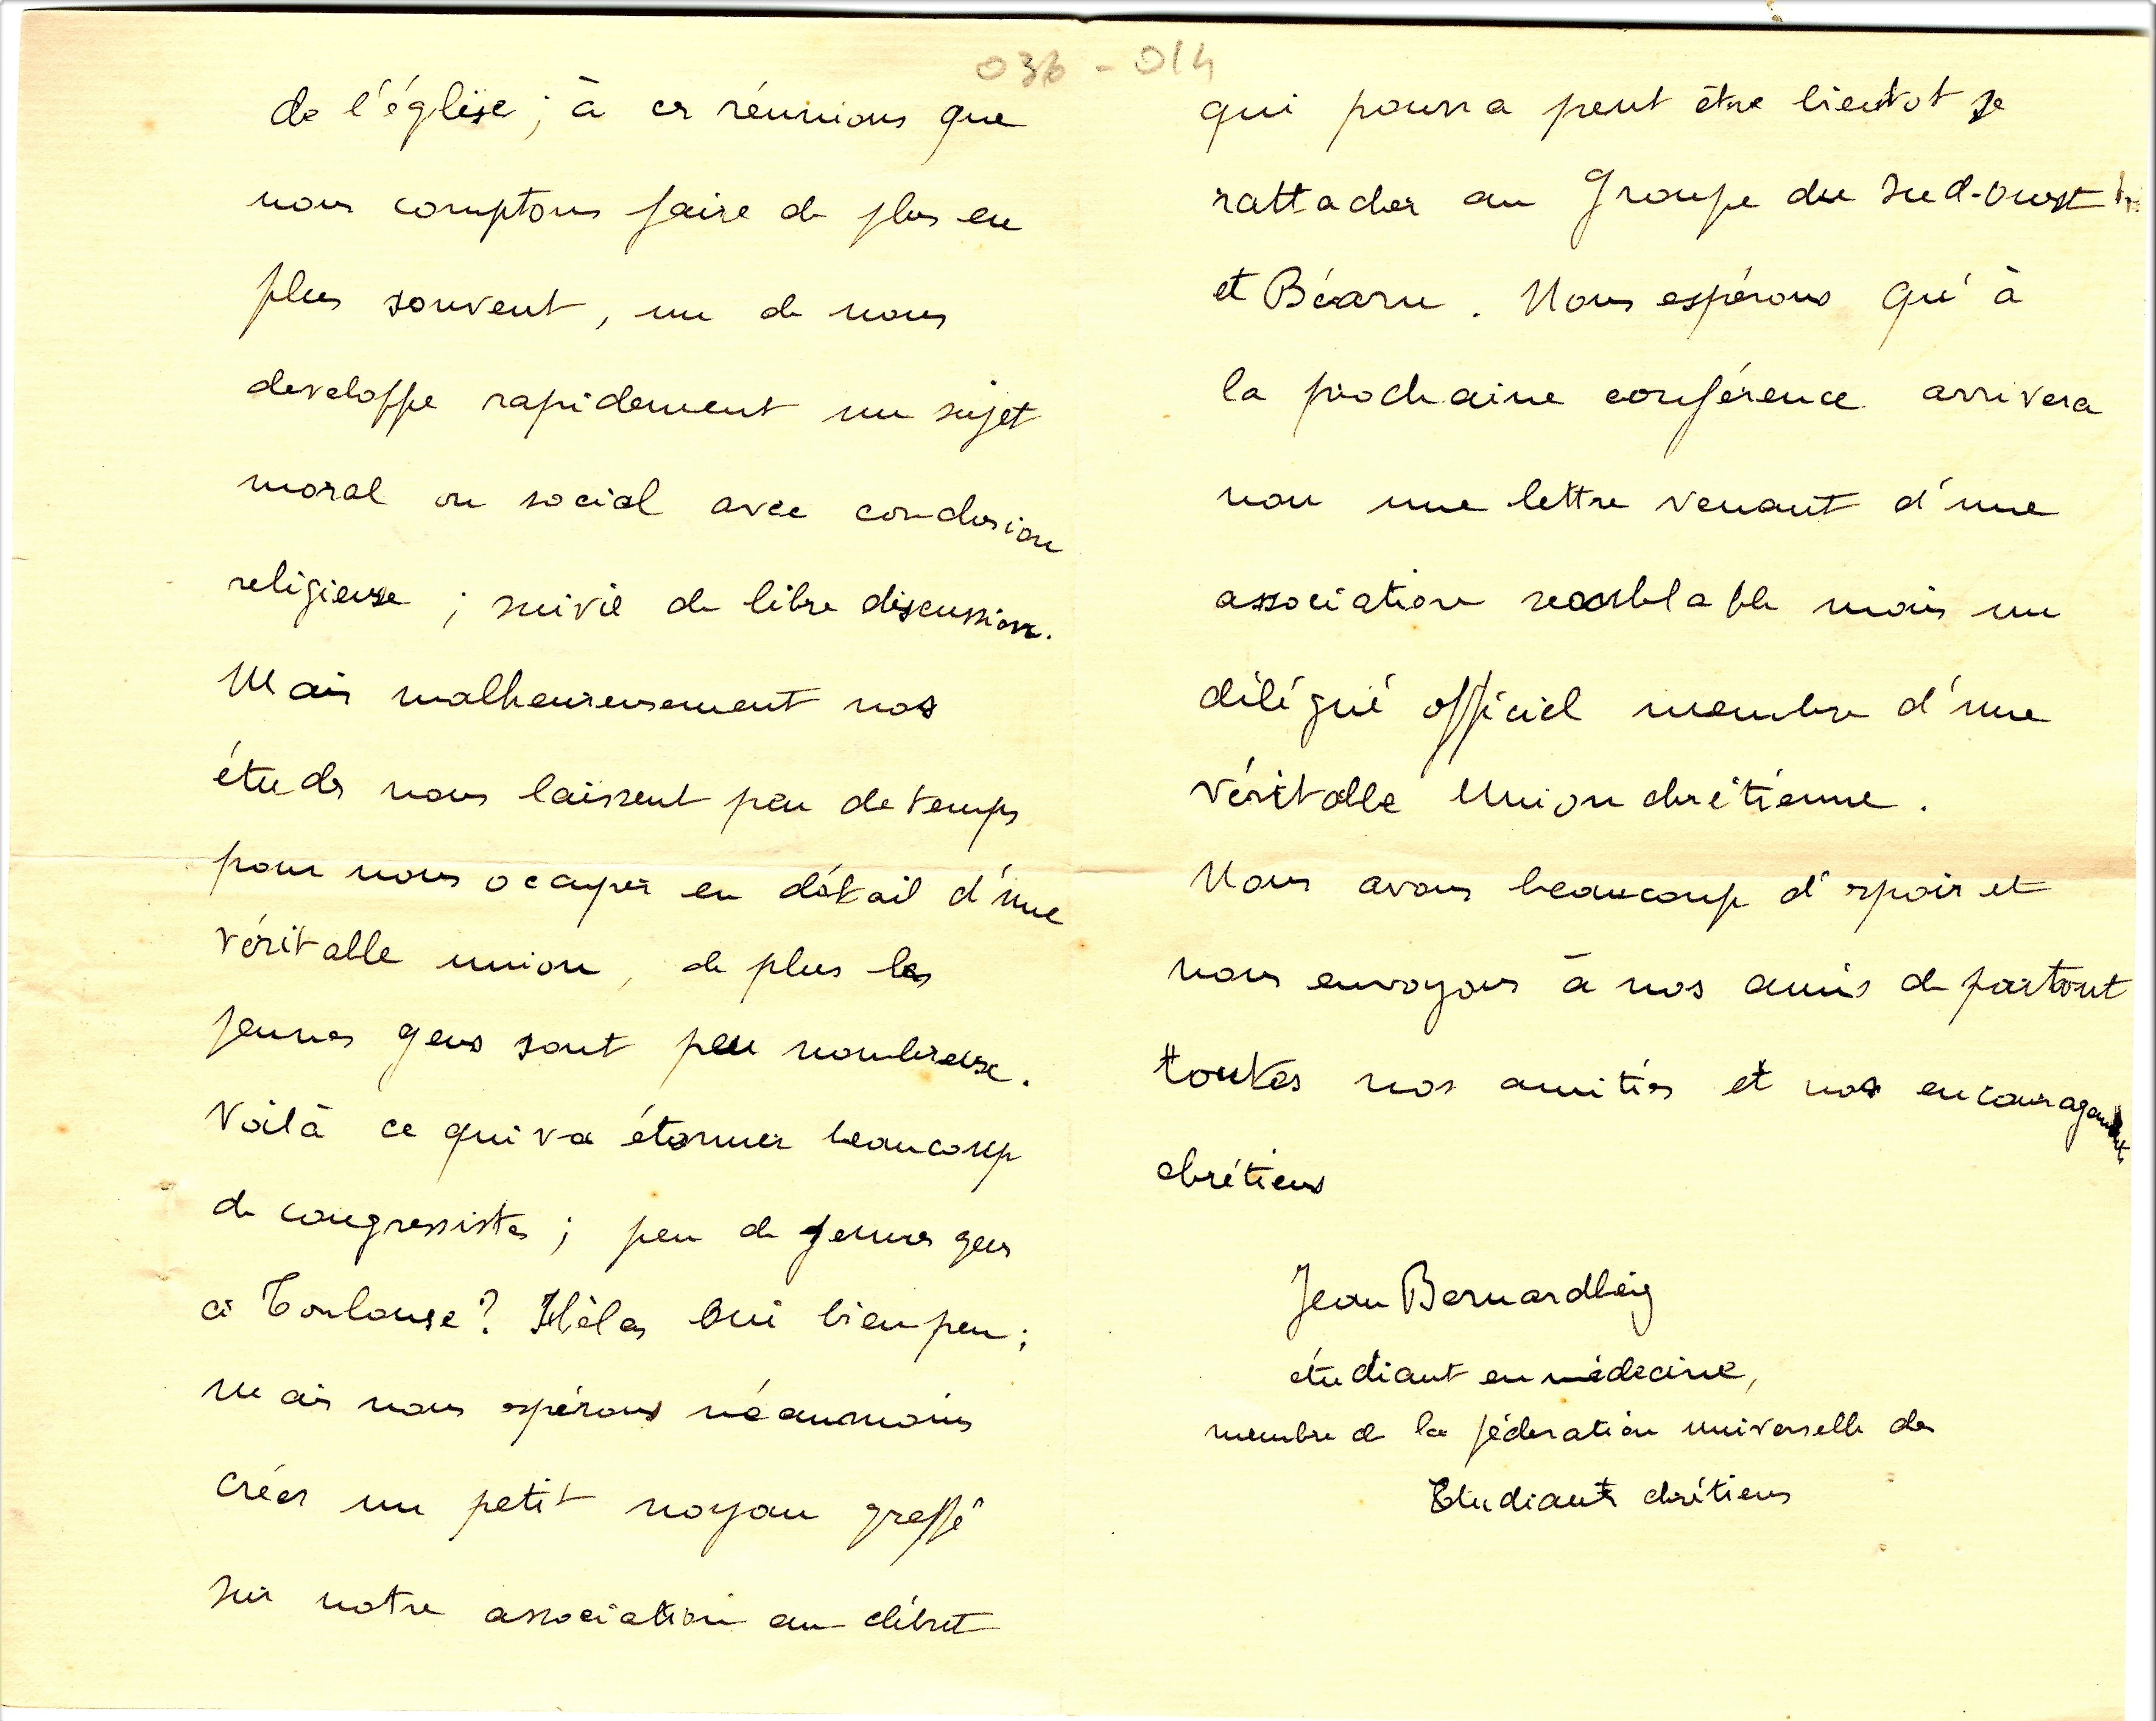 036 - 014
de l'église ; à ces réunions que
nous comptons faire de plus en
plus souvent, un de nous
developpe rapidement un sujet
moral ou social avec conclusion
religieuse ; suivie de libre discussion.
Mais malheureusement nos
études nous laissent peu de temps
pour nous occuper en détail d'une
véritable union, de plus les
jeunes gens sont peu nombreuse.
Voilà ce qui va étonner beaucoup
de congressistes ; peu de jeunes gens
à Toulouse? Hélas Oui bien peu ;
mais nous espérons néaumoins
créer un petit noyau greffé
sur notre association au début
qui pourra peut être bientot se
rattacher au Groupe du Sud-Ouest
et Béarn. Nous espérons qu'à
la prochaine conférence arrivera
non une lettre venant d'une
association semblable mais un
délégué officiel membre d'une
véritable Union chrétienne.
Nous avons beaucoup d'espoir et
nous envoyons à nos amis de partout
toutes nos amitiés et nos encouragements
chrétiens
Jean Bernardbeig
étudiant en médecine,
membre de la féderation universelle des
Etudiants chrétiens